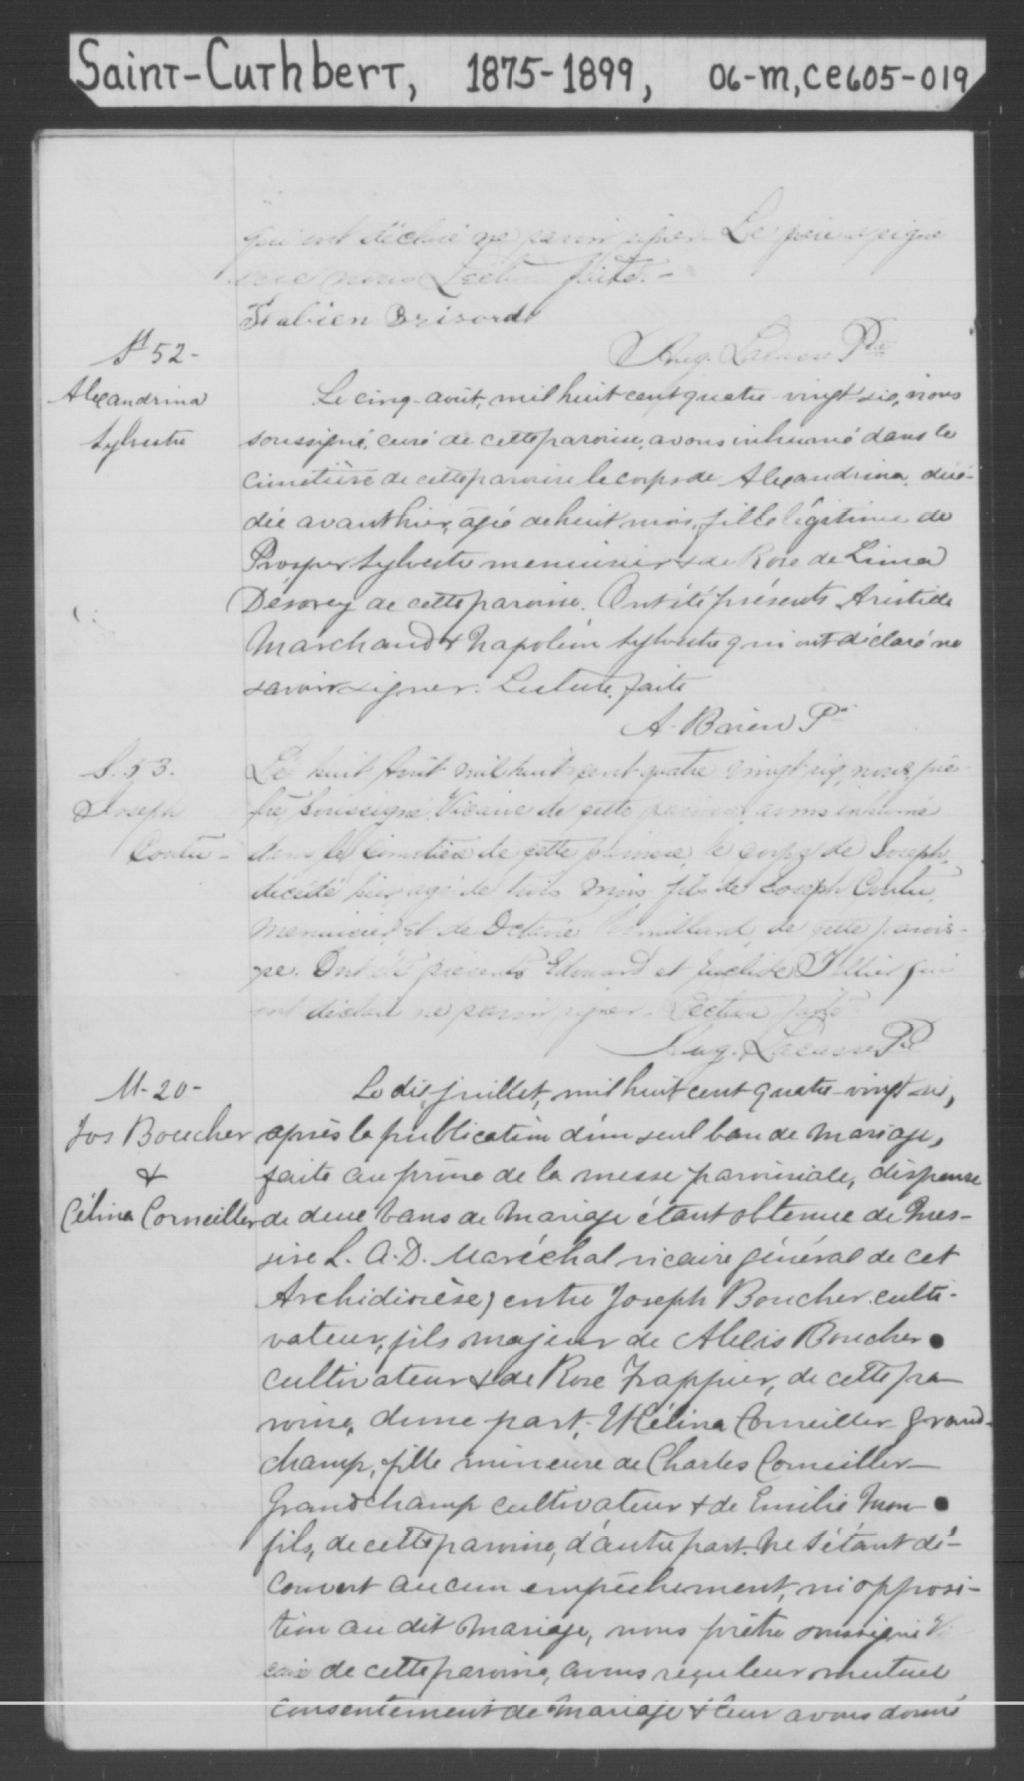 Saint-Cuthbert, 1875-1899, 06-m, ce605-019
qui ont déclaré ne savoir signer. Le père a signé
avec nous Lecture faite. -
Fabien Brisard
Aug. Lacasse Ptre
S 52 -
Alexandrina
Sylvestre
Le cinq août, mil huit cent quatre-vingt six, nous
soussigné, curé de cette paroisse, avons inhumé dans le
cimetière de cette paroisse le corps de Alexandrina, décé-
dée avant hier, âgée de huit mois, fille légitime de
Prosper Sylvestre menuisier & de Rose de Lima
Désorcy de cette paroisse. Ont été présents Aristide
Marchand & Napoléon Sylvestre qui ont déclaré ne
savoir signer. Lecture faite
A. Brien Ptre
S. 53.
Joseph
Coutu -
Le huit Août mil huit cent quatre vingt six, nous, prê-
tre, soussigné, Vicaire de cette paroisse, avons inhumé
dans le Cimetière de cette paroisse, le corps de Joseph,
décédé hier, agé de trois mois, fils de Joseph Coutu,
menuisier, et de Octavie de cette parois-
se. Ont été présents Edouard et qui
ont déclaré ne savoir signer. Lecture faite
Aug. Lacasse Ptre
M-20-
Jos Boucher
&
Célina Corneiller
Le dix juillet, mil huit cent quatre-vingt six,
après la publication d'un seul ban de mariage,
faite au prône de la messe paroissiale, dispense
de deux bans de mariage étant obtenue de Mes-
sire L. A. D. Maréchal vicaire général de cet
Archidiocèse, entre Joseph Boucher culti-
vateur, fils majeur de Alexis Boucher
cultivateur & de Rose Frappier, de cette pa-
roisse, d'une part; & Célina Corneiller Grand-
champ, fille mineure de Charles Corneiller-
Grandchamp cultivateur & de Emilie Mon-
fils, de cette paroisse, d'autre part. Ne s'étant dé-
couvert aucun empêchement, ni opposi-
tion au dit mariage, nous prêtre soussigné Vi
caire de cette paroisse, avons reçu leur mutuel
consentement de mariage & leur avons donné